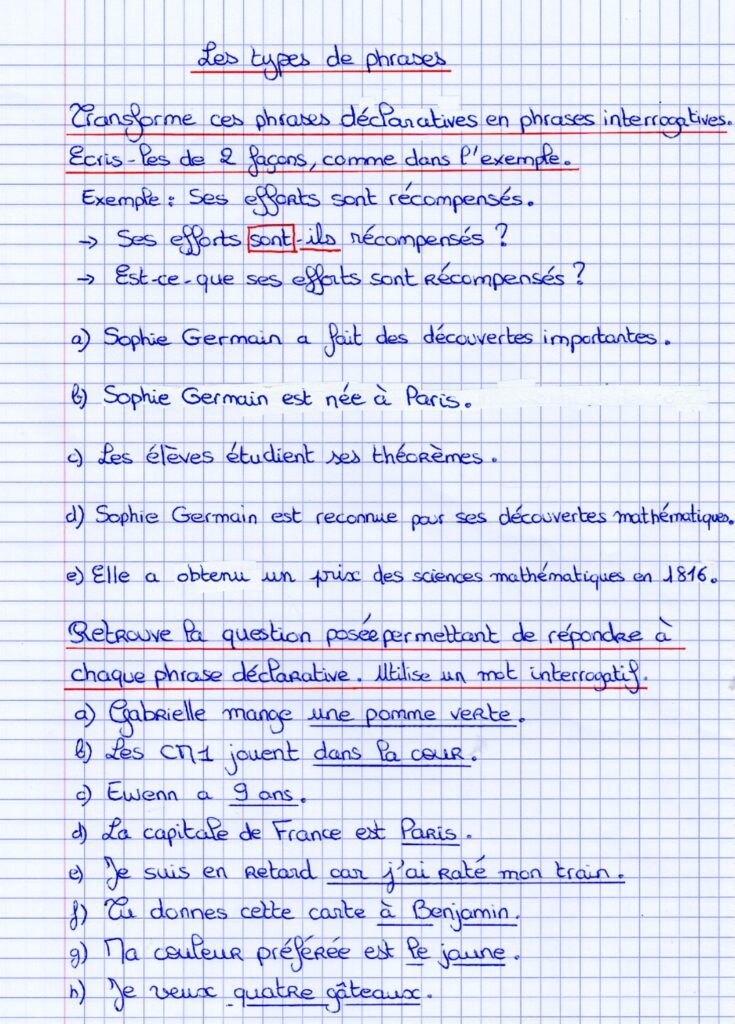 Les types de phrases
Transforme ces phrases déclaratives en phrases interrogatives.
Ecris-les de 2 façons, comme dans l'exemple.
Exemple : Ses efforts sont récompensés.
→ Ses efforts sont-ils récompensés ?
→ Est-ce-que ses efforts sont récompensés ?
a) Sophie Germain a fait des découvertes importantes.
b) Sophie Germain est née à Paris.
c) Les élèves étudient ses théorèmes.
d) Sophie Germain est reconnue pour ses découvertes mathématiques.
e) Elle a obtenu un prix des sciences mathématiques en 1816.
Retrouve la question posée permettant de répondre à
chaque phrase déclarative. Utilise un mot interrogatif.
a) Gabrielle mange une pomme verte.
b) Les CM1 jouent dans la cour.
c) Ewenn a 9 ans.
d) La capitale de France est Paris.
e) Je suis en retard car j'ai raté mon train.
f) Tu donnes cette carte à Benjamin.
g) Ma couleur préférée est le jaune.
h) Je veux quatre gâteaux.